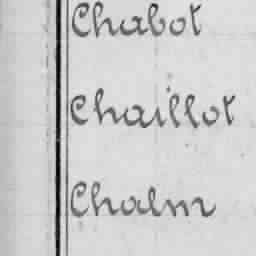 Chabot
Chaillot
Chalm